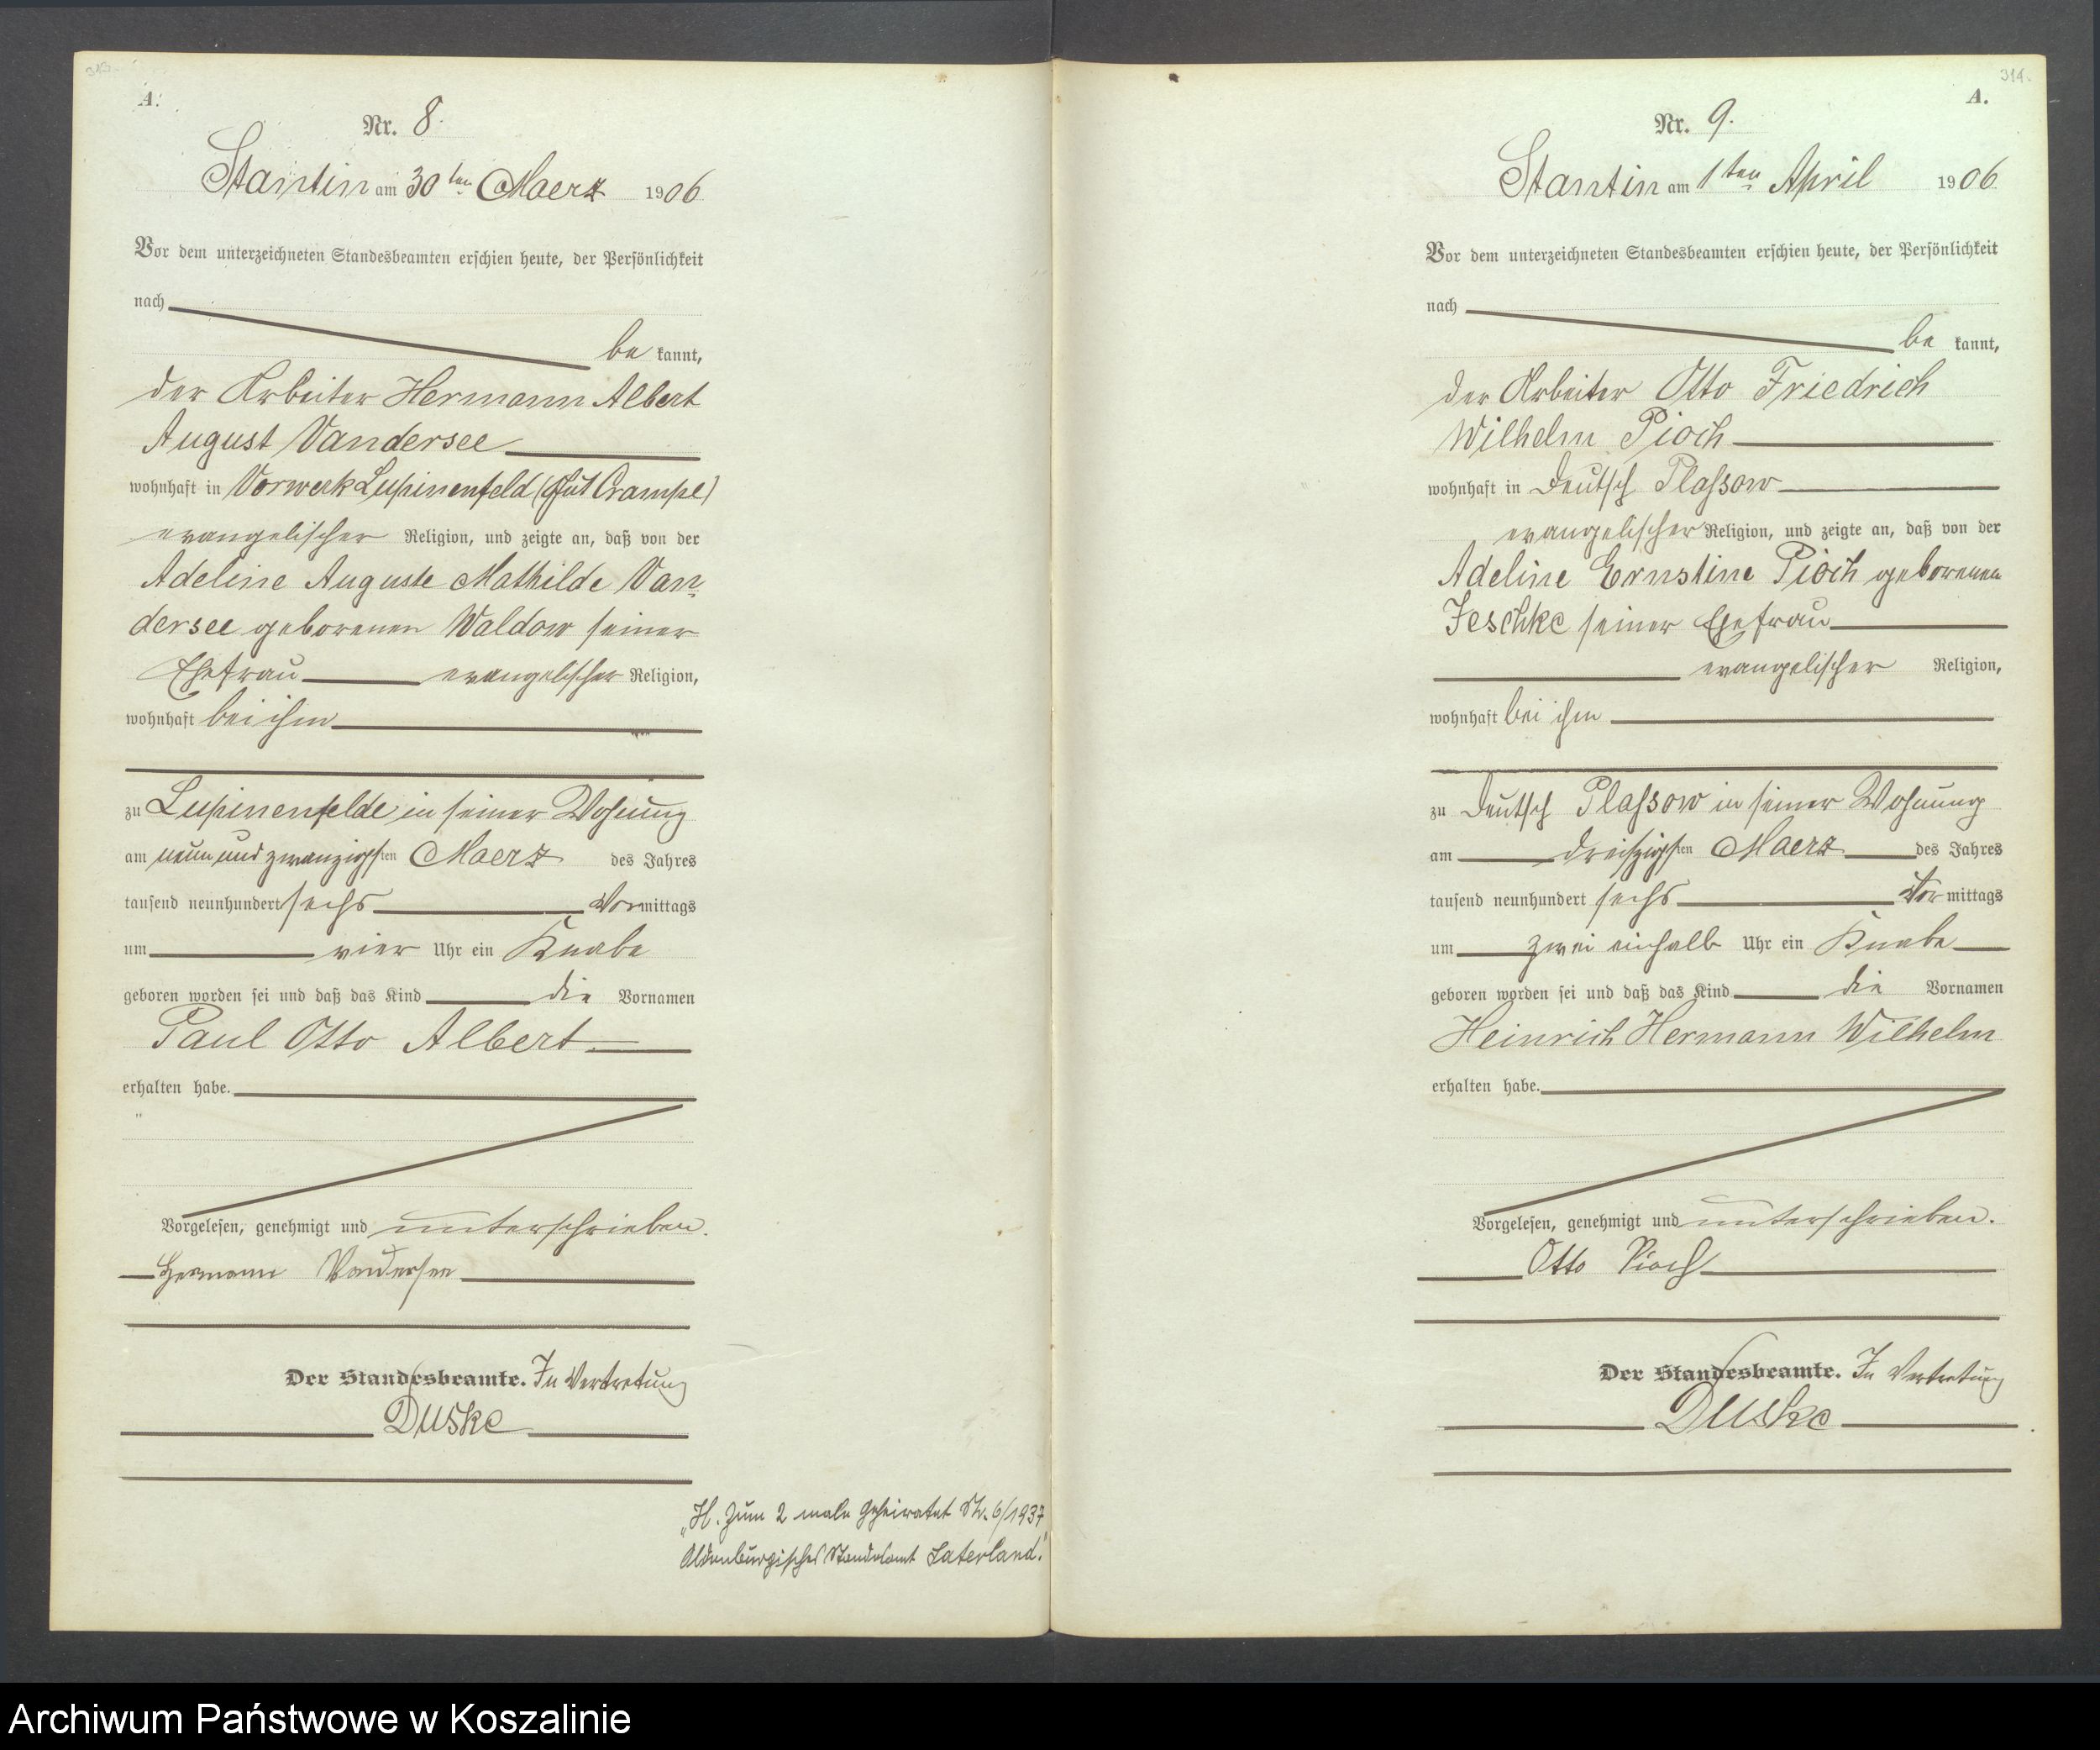 A.
Nr. 8.
Stantin am 30ten Maerz 1906
Vor dem unterzeichneten Standesbeamten erschien heute, der Persönlichkeit
nach
be kannt,
der Arbeiter Hermann Albert
August Vandersee
wohnhaft in Vorwerk Lupinenfeld (Gut Crampe)
evangelischer Religion, und zeigte an, daß von der
Adeline Auguste Mathilde Van-
dersee geborenen Waldow seiner
Ehefrau evangelischer Religion,
wohnhaft bei ihm
zu Lupinenfelde in seiner Wohnung
am neun und zwanzigsten Maerz des Jahres
tausend neunhundert sechs Vormittags
um vier Uhr ein Knabe
geboren worden sei und daß das Kind die Vornamen
Paul Otto Albert
erhalten habe.
Vorgelesen, genehmigt und unterschrieben.
Hermann Vandersee
Der Standesbeamte. In Vertretung
Duske
„H. Zum 2 male geheiratet Nr. 6/1937
Oldenburgisches Standesamt Saterland."
314.
A.
Nr. 9.
Stantin am 1ten April 1906
Vor dem unterzeichneten Standesbeamten erschien heute, der Persönlichkeit
nach
be kannt,
der Arbeiter Otto Friedrich
Wilhelm Pioch
wohnhaft in Deutsch Plassow
evangelischer Religion, und zeigte an, daß von der
Adeline Ernstine Pioch geborenen
Jeschke seiner Ehefrau
evangelischer Religion,
wohnhaft bei ihm
zu Deutsch Plassow in seiner Wohnung
am dreißigsten Maerz des Jahres
tausend neunhundert sechs Vor mittags
um zwei einhalb Uhr ein Knabe
geboren worden sei und daß das Kind die Vornamen
Heinrich Hermann Wilhelm
erhalten habe.
Vorgelesen, genehmigt und unterschrieben.
Otto Pioch
Der Standesbeamte. In Vertretung
Duske
Archiwum Państwowe w Koszalinie